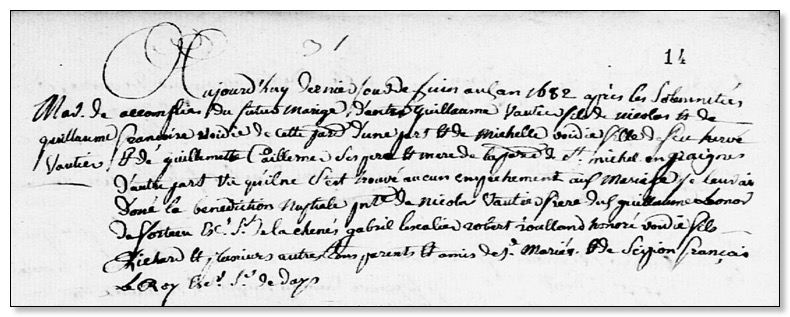 14
Aujourd'huy dernier jour de Juin au l'an 1682 après les Solemnitées
Mar. de accomplies du futur Mariage, d'entre guillaume Vautier fils de nicolas et de
guillaume francoise Voidie de cette par. d'une part et de Michelle voidie fille de feu hervé
Vautier et de guillemette Caillerne ses pere et mere de la par. de St. michel en graignes
d'autre part Vû qu'il ne s'est trouvé aucun empeschement aus Mariage je leur ai
Doné la bénédiction nuptiale de nicolas Vautier frere du guillaume Leonor
de Sr. de la chenés gabriel lescalier robert roulland honoré voidie fils
Richard et plusieurs autres parents et amis de Mariés. et de Scipion françois
Le Roy Sr. de days